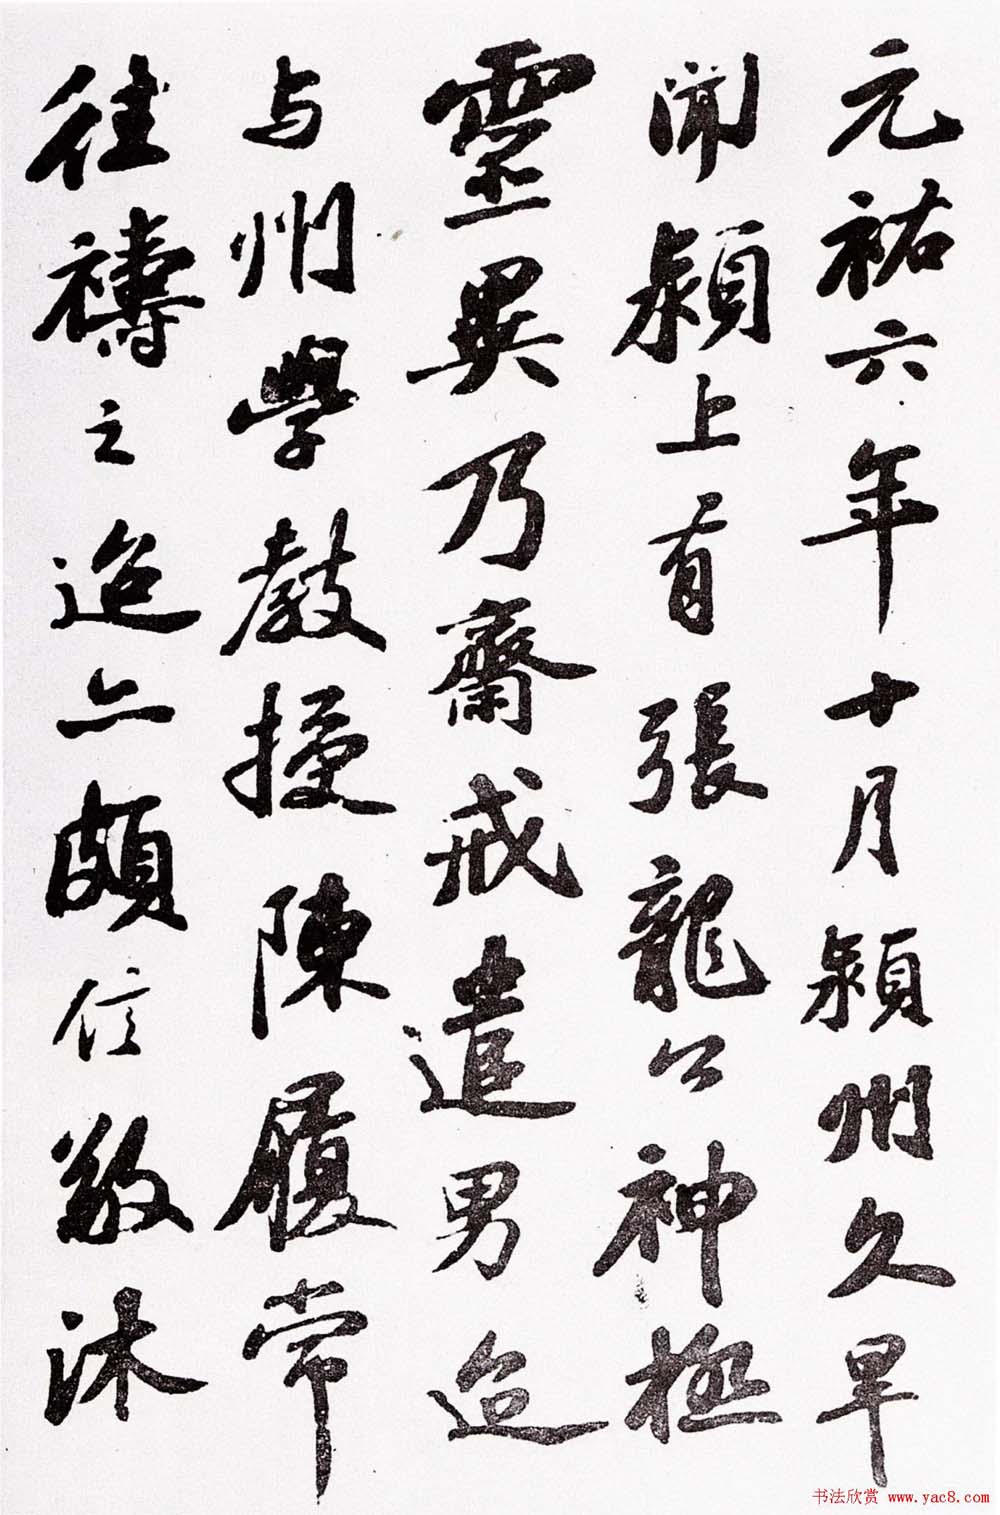 元祐六年十月潁州久旱
聞潁上有張龍公神極
靈異乃齋戒遣男迨
与州學教授陳履常
往禱之迨亦頗信敬沐
书法欣赏 www.yac8.com